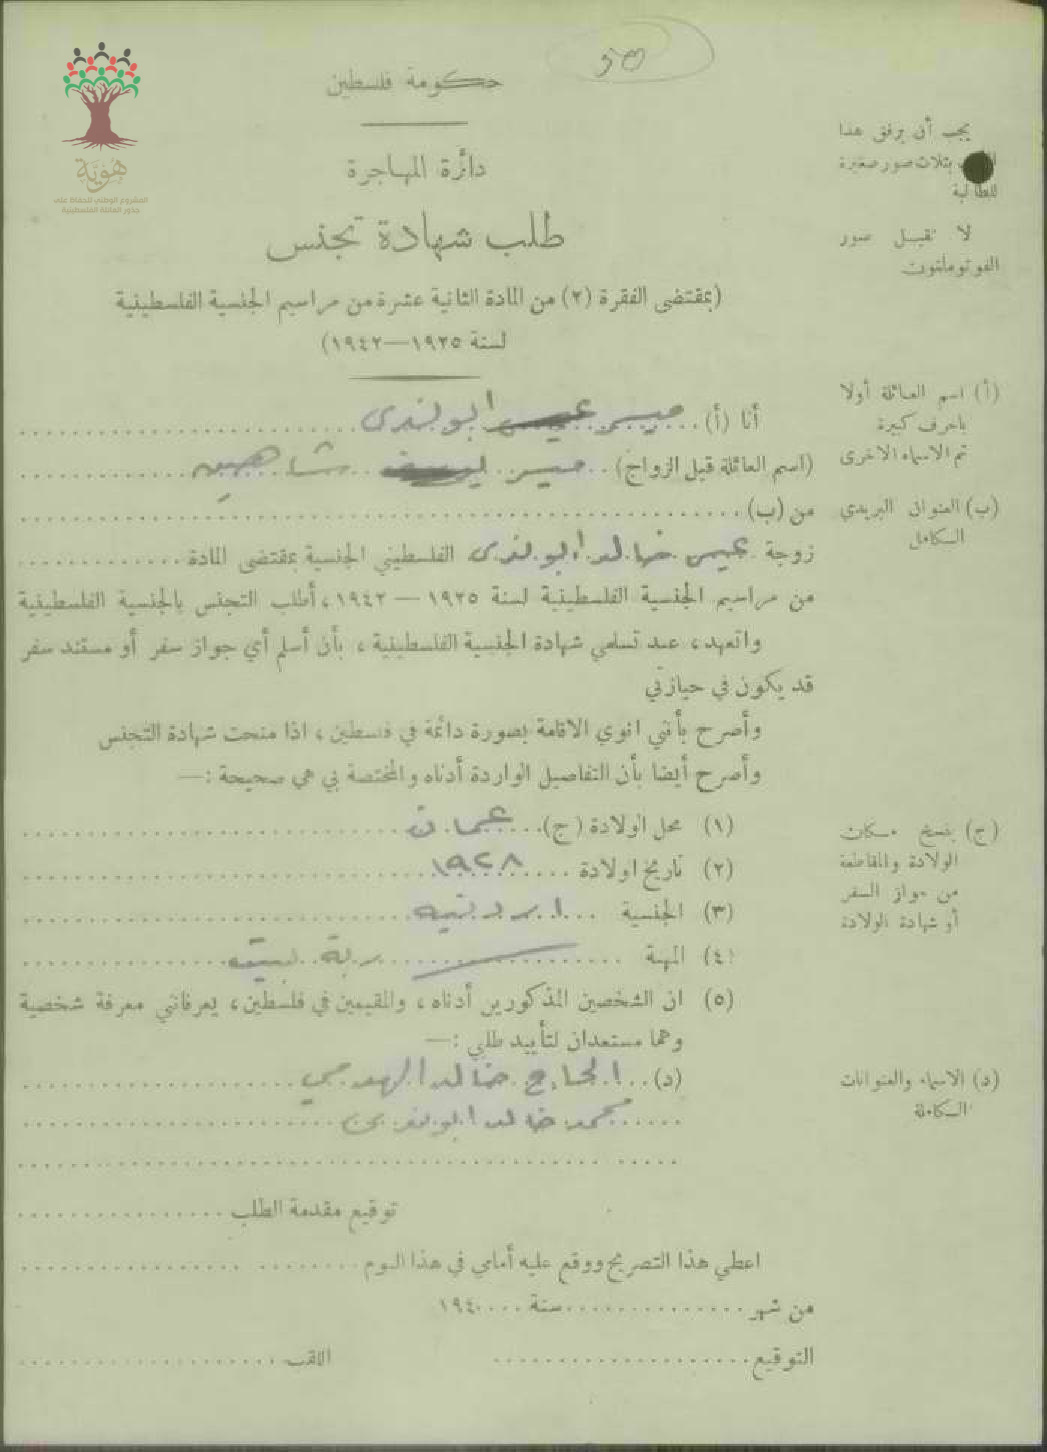 حكومة فلسطين
دائرة المهاجرة
طلب شهادة تجنس
(بمقتضى الفقرة (٢) من المادة الثانية عشرة من مراسيم الجنسية الفلسطينية
لسنة ١٩٢٥—١٩٤٢)
يجب أن يرفق هذا
بثلاث صور صغيرة
للطالبة
لا تقبل صور
الفوتوماتون
هُويَّة
المشروع الوطني للحفاظ على
جذور العائلة الفلسطينية
أنا (أ) ابو لندى
(اسم العائلة قبل الزواج) شاهين
من (ب)
زوجة عيسى خالد ابو لندى الفلسطيني الجنسية بمقتضى المادة
من مراسيم الجنسية الفلسطينية لسنة ١٩٢٥ — ١٩٤٢، أطلب التجنس بالجنسية الفلسطينية
واتعهد، عند تسلمي شهادة الجنسية الفلسطينية، بأن أسلم أي جواز سفر أو مستند سفر
قد يكون في حيازتي
وأصرح بأنني انوي الاقامة بصورة دائمة في فلسطين، اذا منحت شهادة التجنس
وأصرح أيضا بأن التفاصيل الواردة أدناه والمختصة بي هي صحيحة :—
(١) محل الولادة (ج) عمان
(٢) تاريخ الولادة ١٩٢٨
(٣) الجنسية اردنيه
(٤) المهنة ربة بيت
(٥) ان الشخصين المذكورين أدناه، والمقيمين في فلسطين، يعرفانني معرفة شخصية
وهما مستعدان لتأييد طلبي :—
(د) الحاج خالد
محمد خالد
توقيع مقدمة الطلب
اعطي هذا التصريح ووقع عليه أمامي في هذا اليوم
من شهر سنة ١٩٤
التوقيع اللقب
(أ) اسم العائلة أولا
باحرف كبيرة
ثم الاسماء الاخرى
(ب) العنوان البريدي
الكامل
(ج) ينسخ مكان
الولادة والمقاطعة
من جواز السفر
أو شهادة الولادة
(د) الاسماء والعنوانات
الكاملة